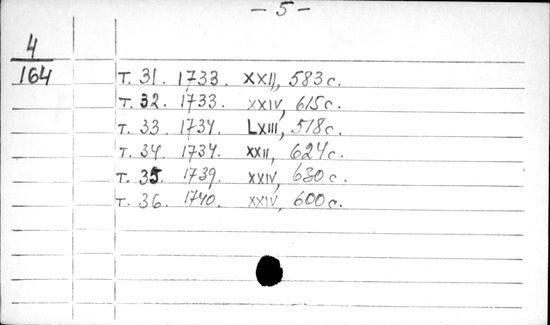 - 5 -
4
164
т. 31. 1733. XXII, 583 с.
т. 32. 1733. XXIV, 615 с.
т. 33. 1734. LXIII, 518 с.
т. 34. 1734. XXII, 624 с.
т. 35. 1739. XXIV, 630 с.
т. 36. 1740. XXIV, 600 с.